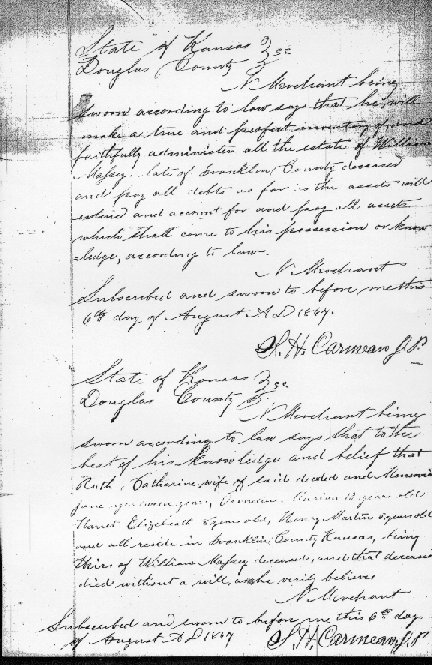 State of Kansas
Douglas County
N Merchant being
sworn according to law says that he will
make a true and perfect inventory of and
faithfully administer all the estate of William
Massey late of Franklin County deceased
and pay all debts as far as the assets will
extend and account for and pay all assets
which shall come to his possession or know
ledge, according to law.
N Merchant
Subscribed and sworn to before me this
6th day of August AD 1867.
S. H. Carmean J. P.
State of Kansas
Douglas County
N Merchant being
sworn according to law says that to the
best of his knowledge and belief that
Ruth Catharine wife of said deceded and
Jane years 13 years old
Elizabeth 8 years old, Henry Martin years old
and all reside in Franklin County Kansas, being
heirs of William Massey deceased, and that deceased
died without a will, as he verily believes
N Merchant
Subscribed and sworn to before me this 6th day
of August AD 1867 S. H. Carmean J. P.